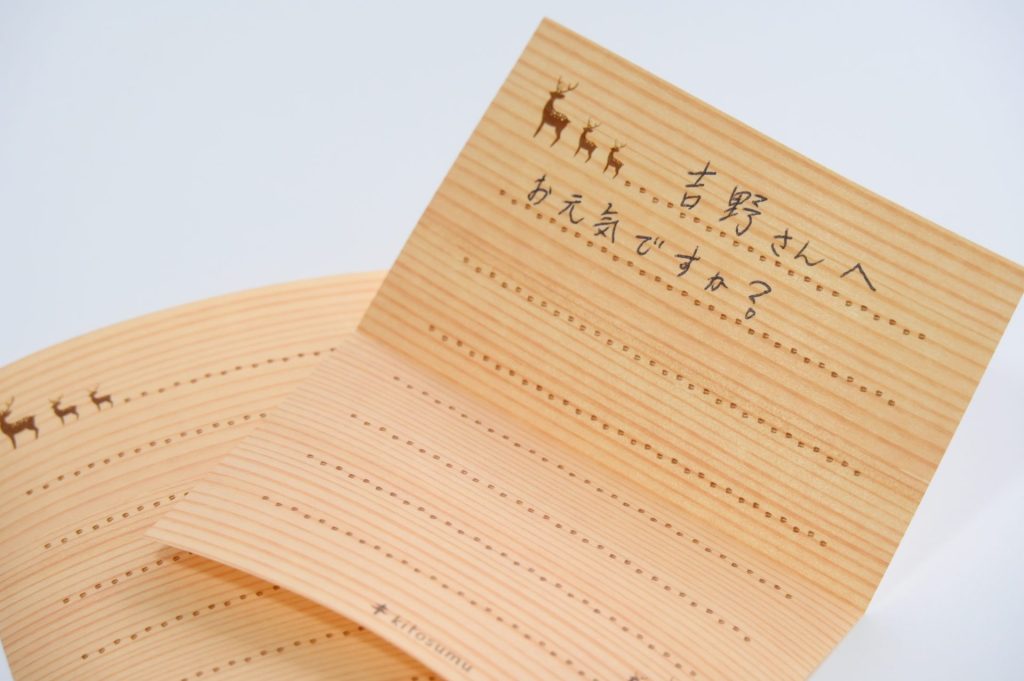 吉野さんへ
お元気ですか?
キkitosumu